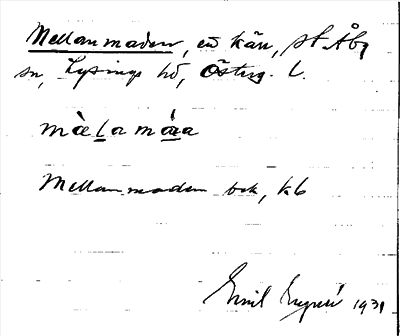 Mellanmaden, en kärr, St. Åby
sn, Lysings hd, Österg. l.
mὲlamáɑa
Mellanmaden bek, kb
Emil 1931